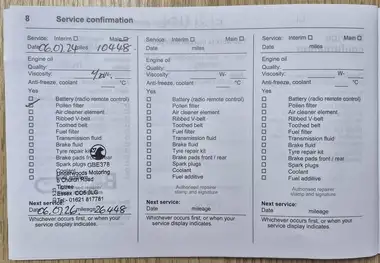 8 Service confirmation
Service: Interim Main
Date 06.07.24 miles 10448
Engine oil
Quality:
Viscosity: W-
Anti-freeze, coolant °C
Yes
Battery (radio remote control)
Pollen filter
Air cleaner element
Ribbed V-belt
Toothed belt
Fuel filter
Transmission fluid
Brake fluid
Tyre repair kit
Brake pads front / rear
Spark plugs GBE378
Underwoods Motoring
5 Church Road
Tiptree
Essex CO5 0LG
Tel - 01621 817781
Next service:
Date mileage 26448
Whichever occurs first, or when your
service display indicates.
Service: Interim Main
Date miles
Engine oil
Quality:
Viscosity: W-
Anti-freeze, coolant °C
Yes
Battery (radio remote control)
Pollen filter
Air cleaner element
Ribbed V-belt
Toothed belt
Fuel filter
Transmission fluid
Brake fluid
Tyre repair kit
Brake pads front / rear
Spark plugs
Coolant
Fuel additive
Authorised repairer
stamp and signature
Next service:
Date mileage
Whichever occurs first, or when your
service display indicates.
Service: Interim Main
Date miles
Engine oil
Quality:
Viscosity: W-
Anti-freeze, coolant °C
Yes
Battery (radio remote control)
Pollen filter
Air cleaner element
Ribbed V-belt
Toothed belt
Fuel filter
Transmission fluid
Brake fluid
Tyre repair kit
Brake pads front / rear
Spark plugs
Coolant
Fuel additive
Authorised repairer
stamp and signature
Next service:
Date mileage
Whichever occurs first, or when your
service display indicates.